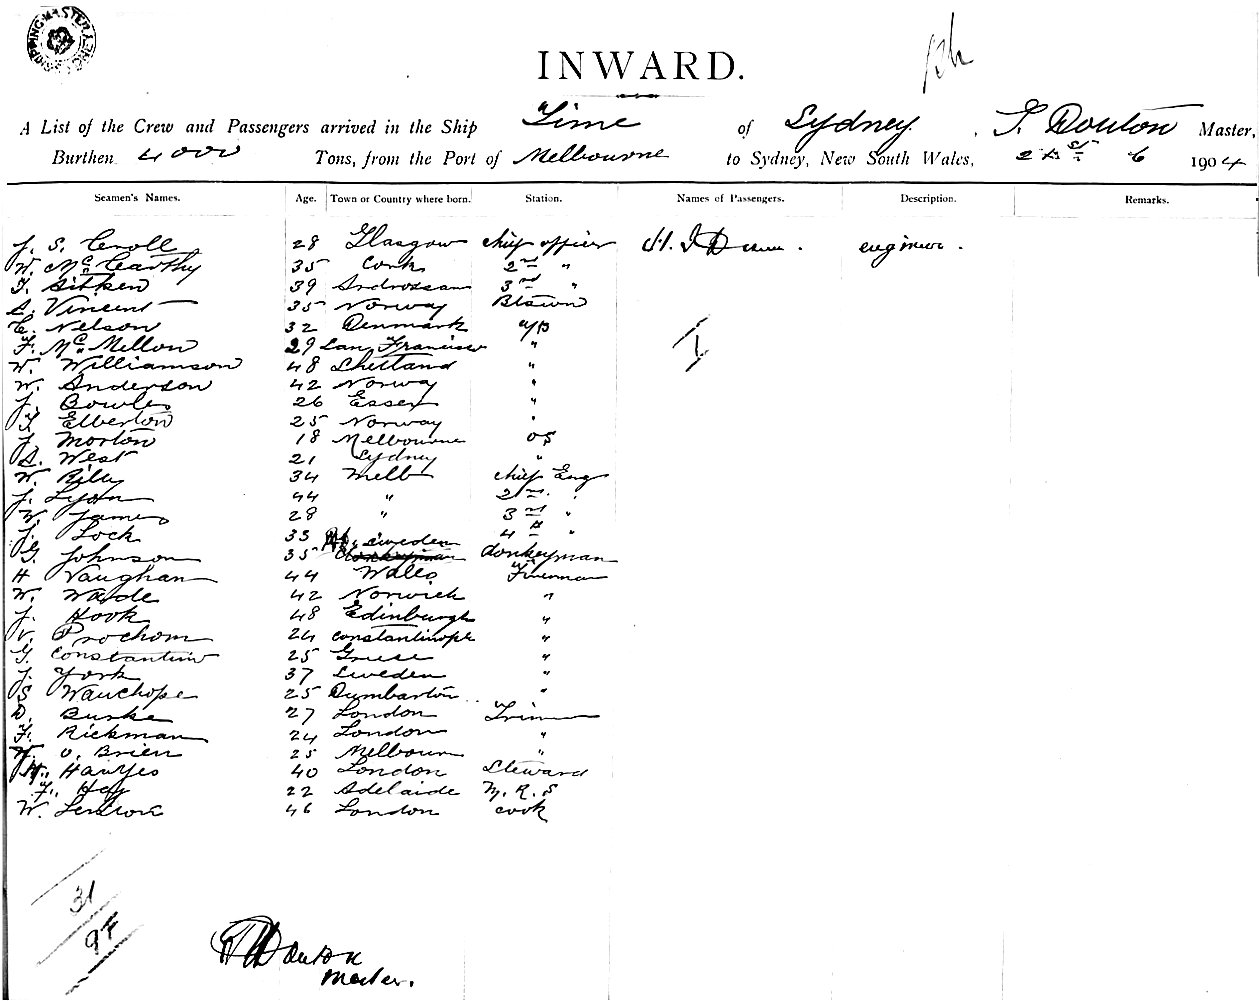 SHIPPING MASTER SYDNEY
INWARD.
A List of the Crew and Passengers arrived in the Ship Time of Sydney. T. Douton Master,
Burthen 4000 Tons, from the Port of Melbourne to Sydney, New South Wales, 21st 6 1904
Seamen's Names. Age. Town or Country where born. Station. Names of Passengers. Description. Remarks.
J. S. Croll 28 Glasgow chief officer H. engineer.
W. McCarthy 35 Cork 2nd "
T. Aitken 39 Androssan 3rd "
A. Vincent 35 Norway Bosun
C. Nelson 32 Denmark A/B
F. McMellon 29 San Francisco "
W. Williamson 48 Shetland "
W. Anderson 42 Norway "
J. Bowles 26 Essex "
T. Elberton 25 Norway "
J. Morton 18 Melbourne OS
A. West 21 Sydney "
W. Rily 34 Melb chief Eng
J. Lyon 44 " 2nd "
W. James 28 " 3rd "
J. Lock 33 4th "
G. Johnson 35 Sweden donkeyman
H Vaughan 44 Wales Fireman
W. Wade 42 Norwich "
J. Hook 48 Edinburgh "
V. Prochom 24 Constantinople "
G. Constantino 25 Greese "
J. York 37 Sweden "
S Wauchope 25 Dumbarton "
D. Burke 27 London Trimmer
F. Rickman 24 London "
W. O. Brien 25 Melbourn "
H. Hawyes 40 London Steward
F. Hay 22 Adelaide M. R. S
W. 46 London cook
31
97
Douton
Master.